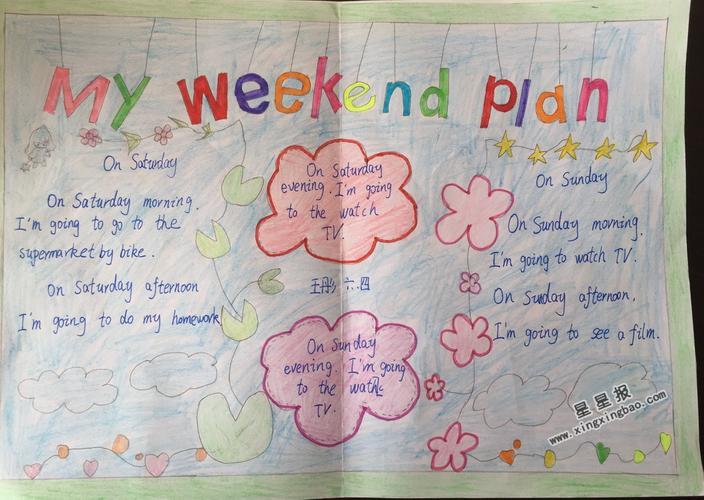 My weekend plan
On Saturday
On Saturday morning.
I'm going to go to the
supermarket by bike.
On Saturday afternoon
I'm going to do my homework
On Saturday
evening. I'm going
to the watch
TV.
六.四
On Sunday
evening. I'm going
to the watch
TV.
On Sunday
On Sunday morning.
I'm going to watch TV.
On Sunday afternoon,
I'm going to see a film.
星星报
www.xingxingbao.com